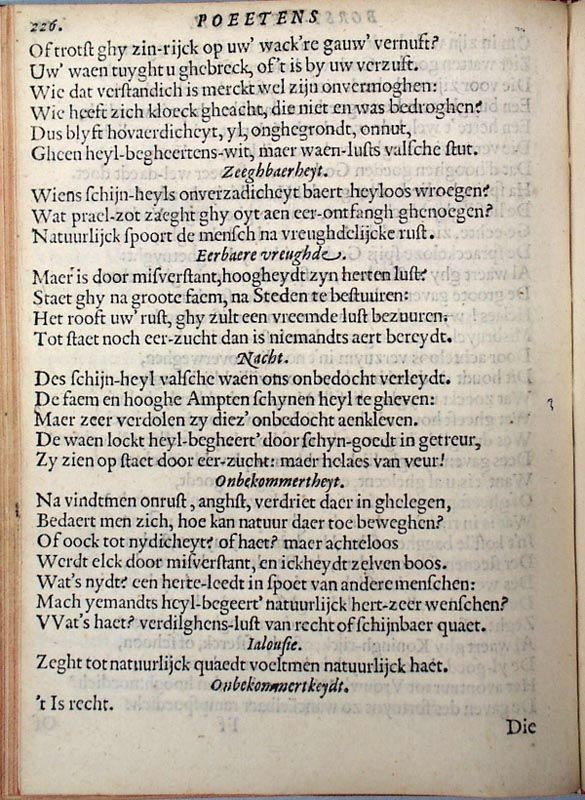 226.
POEETENS
Of trotst ghy zin-rijck op uw' wack're gauw' vernuft?
Uw' waen tuyght u ghebreck, of't is by uw verzust.
Wie dat verstandich is merckt wel zijn onvermoghen:
Wie heeft zich kloeck gheacht, die niet en was bedroghen?
Dus blyft hovaerdicheyt, yl, onghegrondt, onnut,
Gheen heyl-begheertens-wit, maer waen-lusts valsche stut.
Zeeghbaerheyt.
Wiens schijn-heyls onverzadicheyt baert heyloos wroegen?
Wat prael-zot zaeght ghy oyt aen eer-ontfangh ghenoegen?
Natuurlijck spoort de mensch na vreughdelijcke rust.
Eerbaere vreughde.
Maer is door misverstant, hoogheydt zyn herten lust?
Staet ghy na groote faem, na Steden te bestuiren:
Het rooft uw' rust, ghy zult een vreemde lust bezuuren.
Tot staet noch eer-zucht dan is niemandts aert bereydt.
Nacht.
Des schijn-heyl valsche waen ons onbedocht verleydt.
De faem en hooghe Ampten schynen heyl te gheven:
Maer zeer verdolen zy diez' onbedocht aenkleven.
De waen lockt heyl-begheert' door schyn-goedt in getreur,
Zy zien op staet door eer-zucht: maer helaes van veur!
Onbekommertheyt.
Na vindtmen onrust, anghst, verdriet daer in ghelegen,
Bedaert men zich, hoe kan natuur daer toe beweghen?
Of oock tot nydicheyt? of haet? maer achteloos
Werdt elck door misverstant, en ickheydt zelven boos.
Wat's nydt? een herte-leedt in spoet van andere menschen:
Mach yemandts heyl-begeert' natuurlijck hert-zeer wenschen?
VVat's haet? verdilghens-lust van recht of schijnbaer quaet.
Ialousie.
Zeght tot natuurlijck quaedt voeltmen natuurlijck haet.
Onbekommertheydt.
't Is recht.
Die